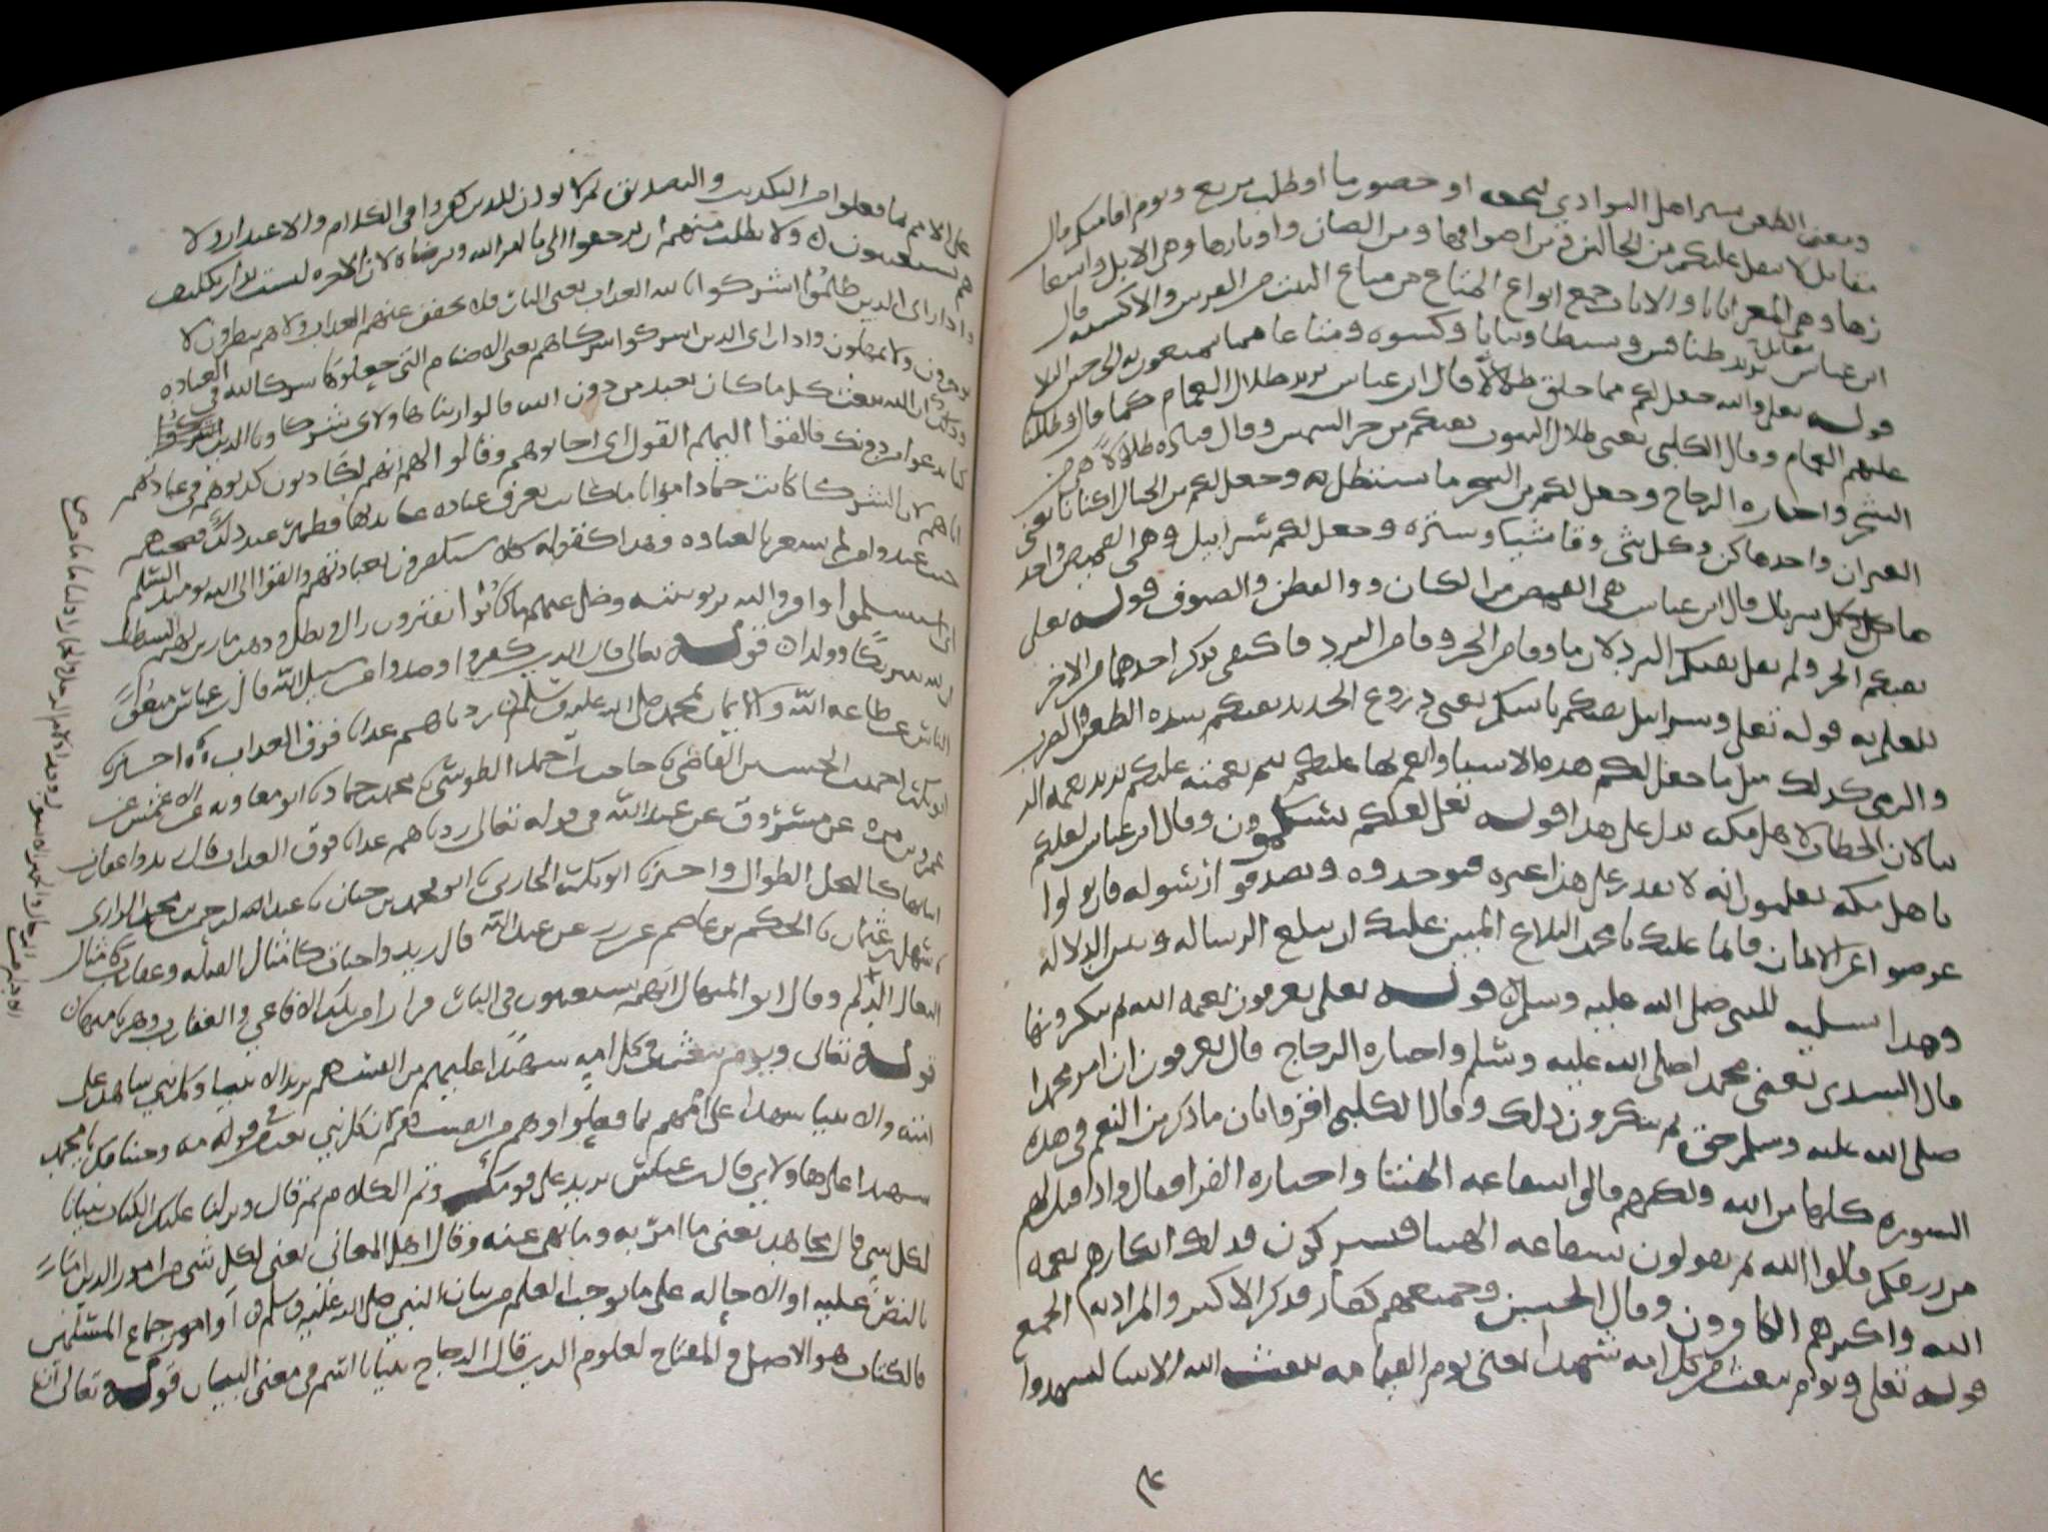 ومعنى الظعن سير اهل البوادي لنجعه او حضور ما او طلب مربع ويوم اقامتكم قال
مقاتل لا يثقل عليكم من الحالتين ومن اصوافها ومن الضان واوبارها وهي الابل واشعا
رها وهي المعز اثاثا والاثاث جمع انواع المتاع من متاع البيت من الفرش والاكسيه قال
ابن عباس يريد طنافس وبسطا وثيابا وكسوه ومتاعا مقاتل
قوله تعلى والله جعل لكم مما خلق ظلالا قال ابن عباس يريد ظلال الغمام كما قال وظللنا
عليهم الغمام وقال الكلبي يعنى ظلال البيوت يقيكم من حر الشمس وقال قتاده ظلالا من
الشجر واختاره الزجاج وجعل لكم من الشجر ما تستظل به وجعل لكم من الجبال اكنانا يعنى
الغيران واحدها كن وكل شى وقا شيا وستره وجعل لكم سرابيل وهي القميص واحد
ها سربال قال ابن عباس هي القميص من الكتان والقطن والصوف قوله تعلى
تقيكم الحر ولم يقل يقيكم البرد لان ما وقا من الحر وقا من البرد فاكتفى بذكر احدهما من الاخر
للعلم به قوله تعلى وسرابيل تقيكم باسكم يعنى دروع الحديد يقيكم شده الطعن والضرب
والرمى كذلك مثل ما جعل لكم هذه الاشيا وانعم بها عليكم يتم نعمته عليكم يريد نعمه الد
نيا لان الخطاب لاهل مكه يدل على هذا قوله تعلى لعلكم تسلمون وقال ابن عباس لعلكم
يا هل مكه تعلمون انه لا يقدر على هذا غيره فتوحدوه وتصدقوا رسوله فان تولوا
عرضوا عن الايمان فانما عليك يا محمد البلاغ المبين عليك ان تبلغ الرساله وتبين الدلاله
وهذا تسليه للنبى صلى الله عليه وسلم قوله تعلى يعرفون نعمه الله ثم ينكرونها
قال السدى يعنى محمدا صلى الله عليه وسلم واختاره الزجاج قال يعرفون ان امر محمدا
صلى الله عليه وسلم حق ثم ينكرون ذلك وقال الكلبى اقروا بان ما ذكر من النعم في هذه
السوره كلها من الله ولكنهم قالوا بشفاعه الهتنا واختاره الفرا فقال واذا قيل لهم
من رزقكم قالوا الله ثم يقولون بشفاعه الهتنا فيشركون فذلك انكارهم نعمه
الله واكثرهم الكافرون وقال الحسن وجميعهم كفار فذكر الاكثر والمراد به الجمع
قوله تعلى ويوم نبعث من كل امه شهيدا يعنى يوم القيامه يبعث الله الانبيا ليشهدوا
على الامم بما فعلوا من التكذيب والتصديق ثم لا يوذن للذين كفروا في الكلام والاعتذار ولا
هم يستعتبون ولا يطلب منهم ان يرجعوا الى ما امر الله ويرضاه لان الاخره ليست بدار تكليف
واذا راى الذين ظلموا اشركوا بالله العذاب يعنى النار فلا يخفف عنهم العذاب ولا هم ينظرون لا
يوخرون ولا يمهلون واذا راى الذين اشركوا شركاهم يعنى الاصنام التى جعلوها شركا لله في العباده
وذلك ان الله يبعث كل ما كان يعبد من دون الله قالوا ربنا هاولاى شركاونا الذين
كنا ندعوا من دونك فالقوا اليهم القول اى اجابوهم وقالوا لهم انكم لكاذبون كذبوهم في عبادتهم
اياهم لان الشركا كانت جمادا مواتا ما كانت تعرف عباده عابديها فظهر عند ذلك فضيحتهم
حيث عبدوا من لم يشعر بالعباده وهذا كقوله كلا سيكفرون بعبادتهم والقوا الى الله يوميذ السلم
اى استسلموا واقروا لله بربوبيته وضل عنهم ما كانوا يفترون زال وبطل
لله شريكا وولدا قوله تعالى قال الذين كفروا وصدوا عن سبيل الله قال ابن عباس منعوا
الناس عن طاعه الله والايمان بمحمد صلى الله عليه وسلم زدناهم عذابا فوق العذاب اخبرنا
ابو بكر احمد بن الحسن القاضى حاجب بن احمد الطوسى محمد بن حماد ابو معاويه عن الاعمش عن
عمرو بن مره عن مسروق عن عبد الله في قوله تعالى زدناهم عذابا فوق العذاب قال زيدوا عقارب
انيابها كالنخل الطوال واخبرنا ابو بكر الحارثى ابو محمد بن حيان عبد الرحمن بن محمد الرازى
سهل بن عثمان الحكم بن عن عاصم عن زر عن عبد الله قال زيدوا حيات كامثال الفيله وعقارب كامثال
البغال الدلم وقال ابو المنهال انهم يستغيثون في النار فرارا من تلك الافاعي والعقارب وهربا
قوله تعالى ويوم نبعث في كل امه شهيدا عليهم من انفسهم يريد الانبيا وكل نبي شاهد على
امته والانبيا شهدا على اممهم بما فعلوا وهم من انفسهم لان كل نبي بعث في قومه وجينا بك يا محمد
شهيدا على هاولاى قال ابن عباس يريد على قومك وتم الكلام ثم قال ونزلنا عليك الكتاب تبيانا
لكل شى قال مجاهد يعنى ما امر به وما نهى عنه وقال اهل المعانى يعنى لكل شى من امور الدين اما
بالنص عليه او الاحاله على ما يوجب العلم من بيان النبى صلى الله عليه وسلم او اجماع المسلمين
فالكتاب هو الاصل والمفتاح لعلوم الدين قال الزجاج تبيانا اسم في معنى البيان قوله تعالى